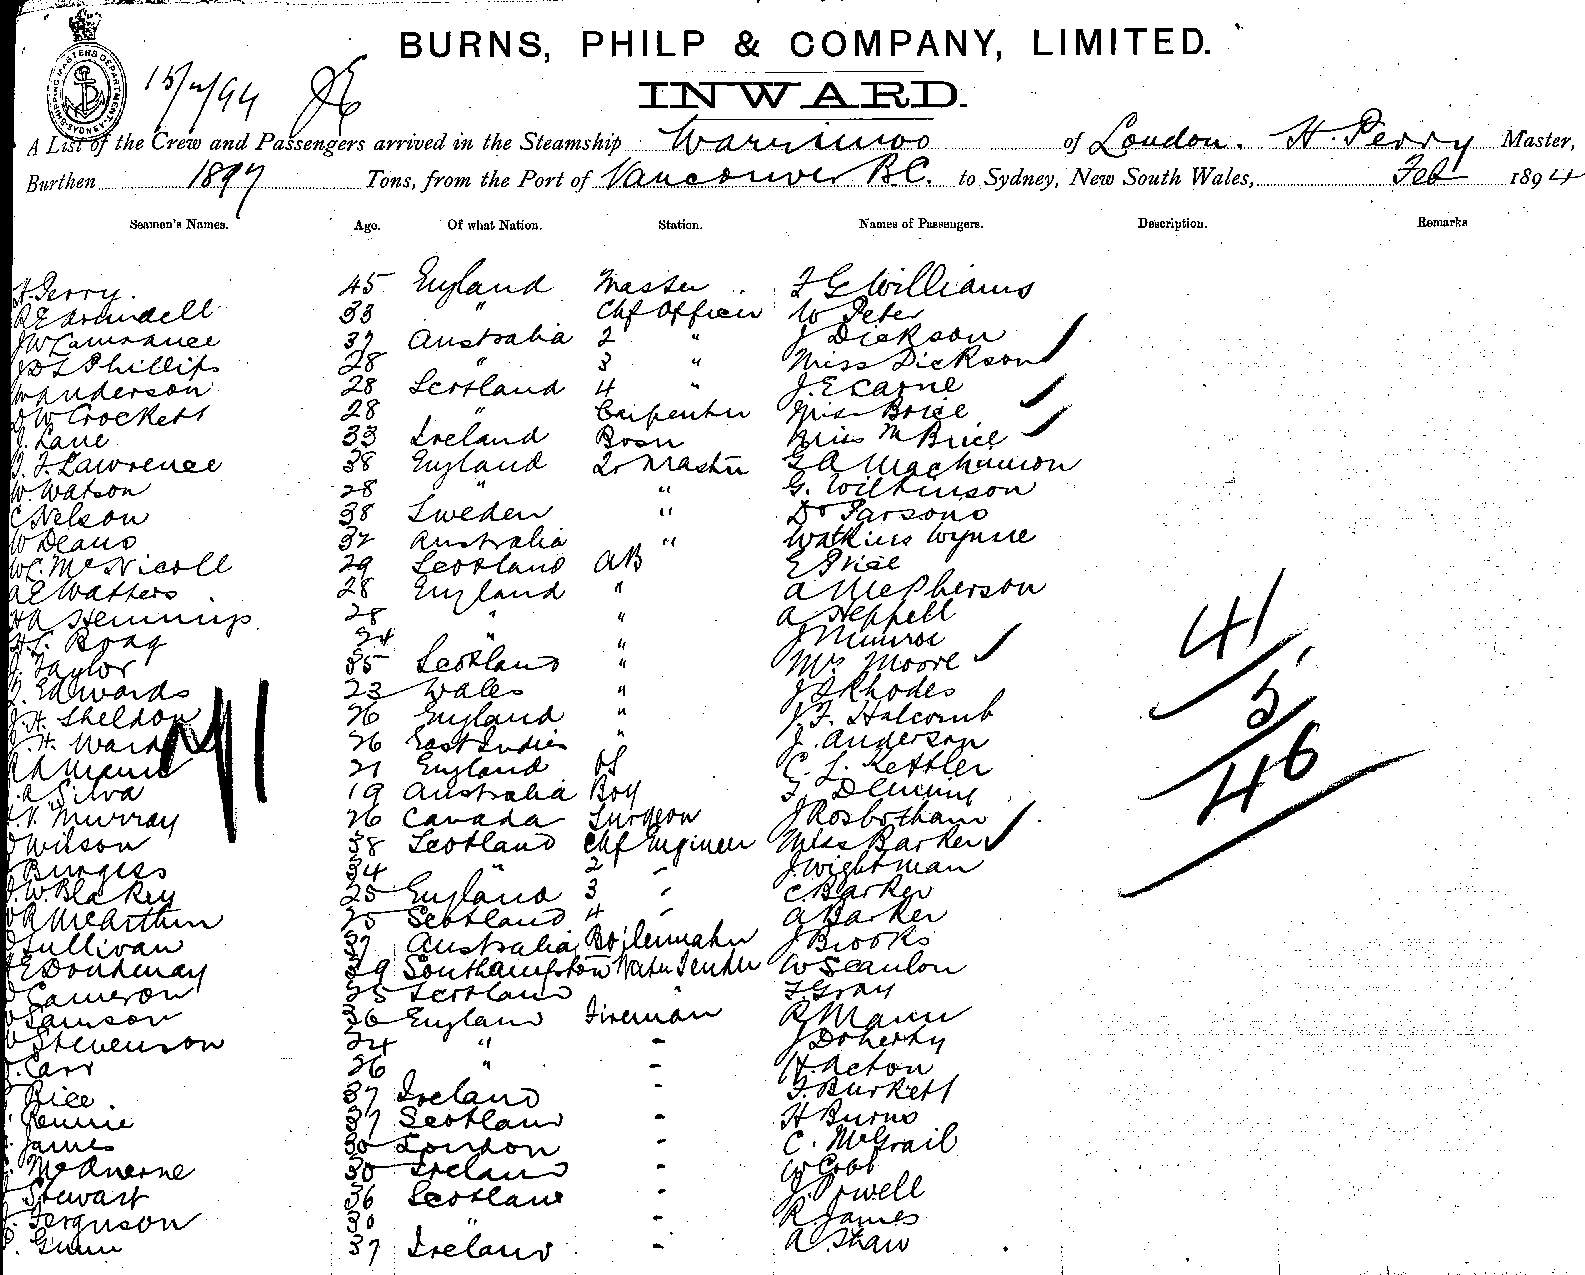 BURNS, PHILP & COMPANY, LIMITED.
INWARD.
15/2/94
A List of the Crew and Passengers arrived in the Steamship Warrimoo of London. H. Perry Master,
Burthen 1897 Tons, from the Port of Vancouver B.C. to Sydney, New South Wales, Feb 1894
Seamen's Names. Age. Of what Nation. Station. Names of Passengers. Description. Remarks
H. Perry. 45 England Master F G Williams
R E Arundell 33 " Chf Officer W Peter
37 Australia 2 " J Dickson
Phillips 28 " 3 " Miss Dickson
Anderson 28 Scotland 4 " J. E Carne
W Crockett 28 " Carpenter Miss Brice
J. Lane 33 Ireland Bosn Miss M Brice
F Lawrence 38 England Qr Master G A
W. Watson 28 " " G. Wilkinson
C Nelson 38 Sweden " Dr Parsons
W Deans 32 Australia " Watkins Wynne
W C. McNicoll 29 Scotland AB E Price
A E Watters 28 England " A McPherson
H A Hemmings 28 " " A Heppell
H L. Boag 24 " " J Munroe
J. Taylor 35 Scotland " Mrs Moore
Edwards 23 Wales " J S Rhodes
J. H. Sheldon 26 England " J. F. Halcomb
J. H. Ward 26 East Indies " J. Anderson
21 England OS C. L. Kettler
Silva 19 Australia Boy
V. Murray 26 Canada Surgeon J Rosbotham
Wilson 38 Scotland Chf Engineer Miss Barker
Burgess 34 " 2 " J. Wightman
W. Blakey 25 England 3 " C Barker
R McArthur 25 Scotland 4 " A Barker
Sullivan 37 Australia Boilermaker J Brooks
29 Southampton Water Tender W Scanlon
Cameron 25 Scotland " F Gray
Samson 36 England Fireman R Mann
Stevenson 24 " - J Doherty
Carr 26 " - H. Acton
Rice. 37 Ireland F. Burkett
Rennie 37 Scotland - H Burns
James 30 London - C. McGrail
30 Ireland - W Cobb
Stewart 36 Scotland - J. Powell
Ferguson 30 " - R James
Gunn 37 Ireland - A. Shaw
41
5
46